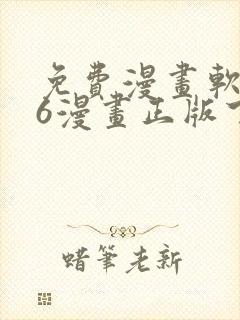 免費漫畫軟
6漫畫正版
蜡筆老新